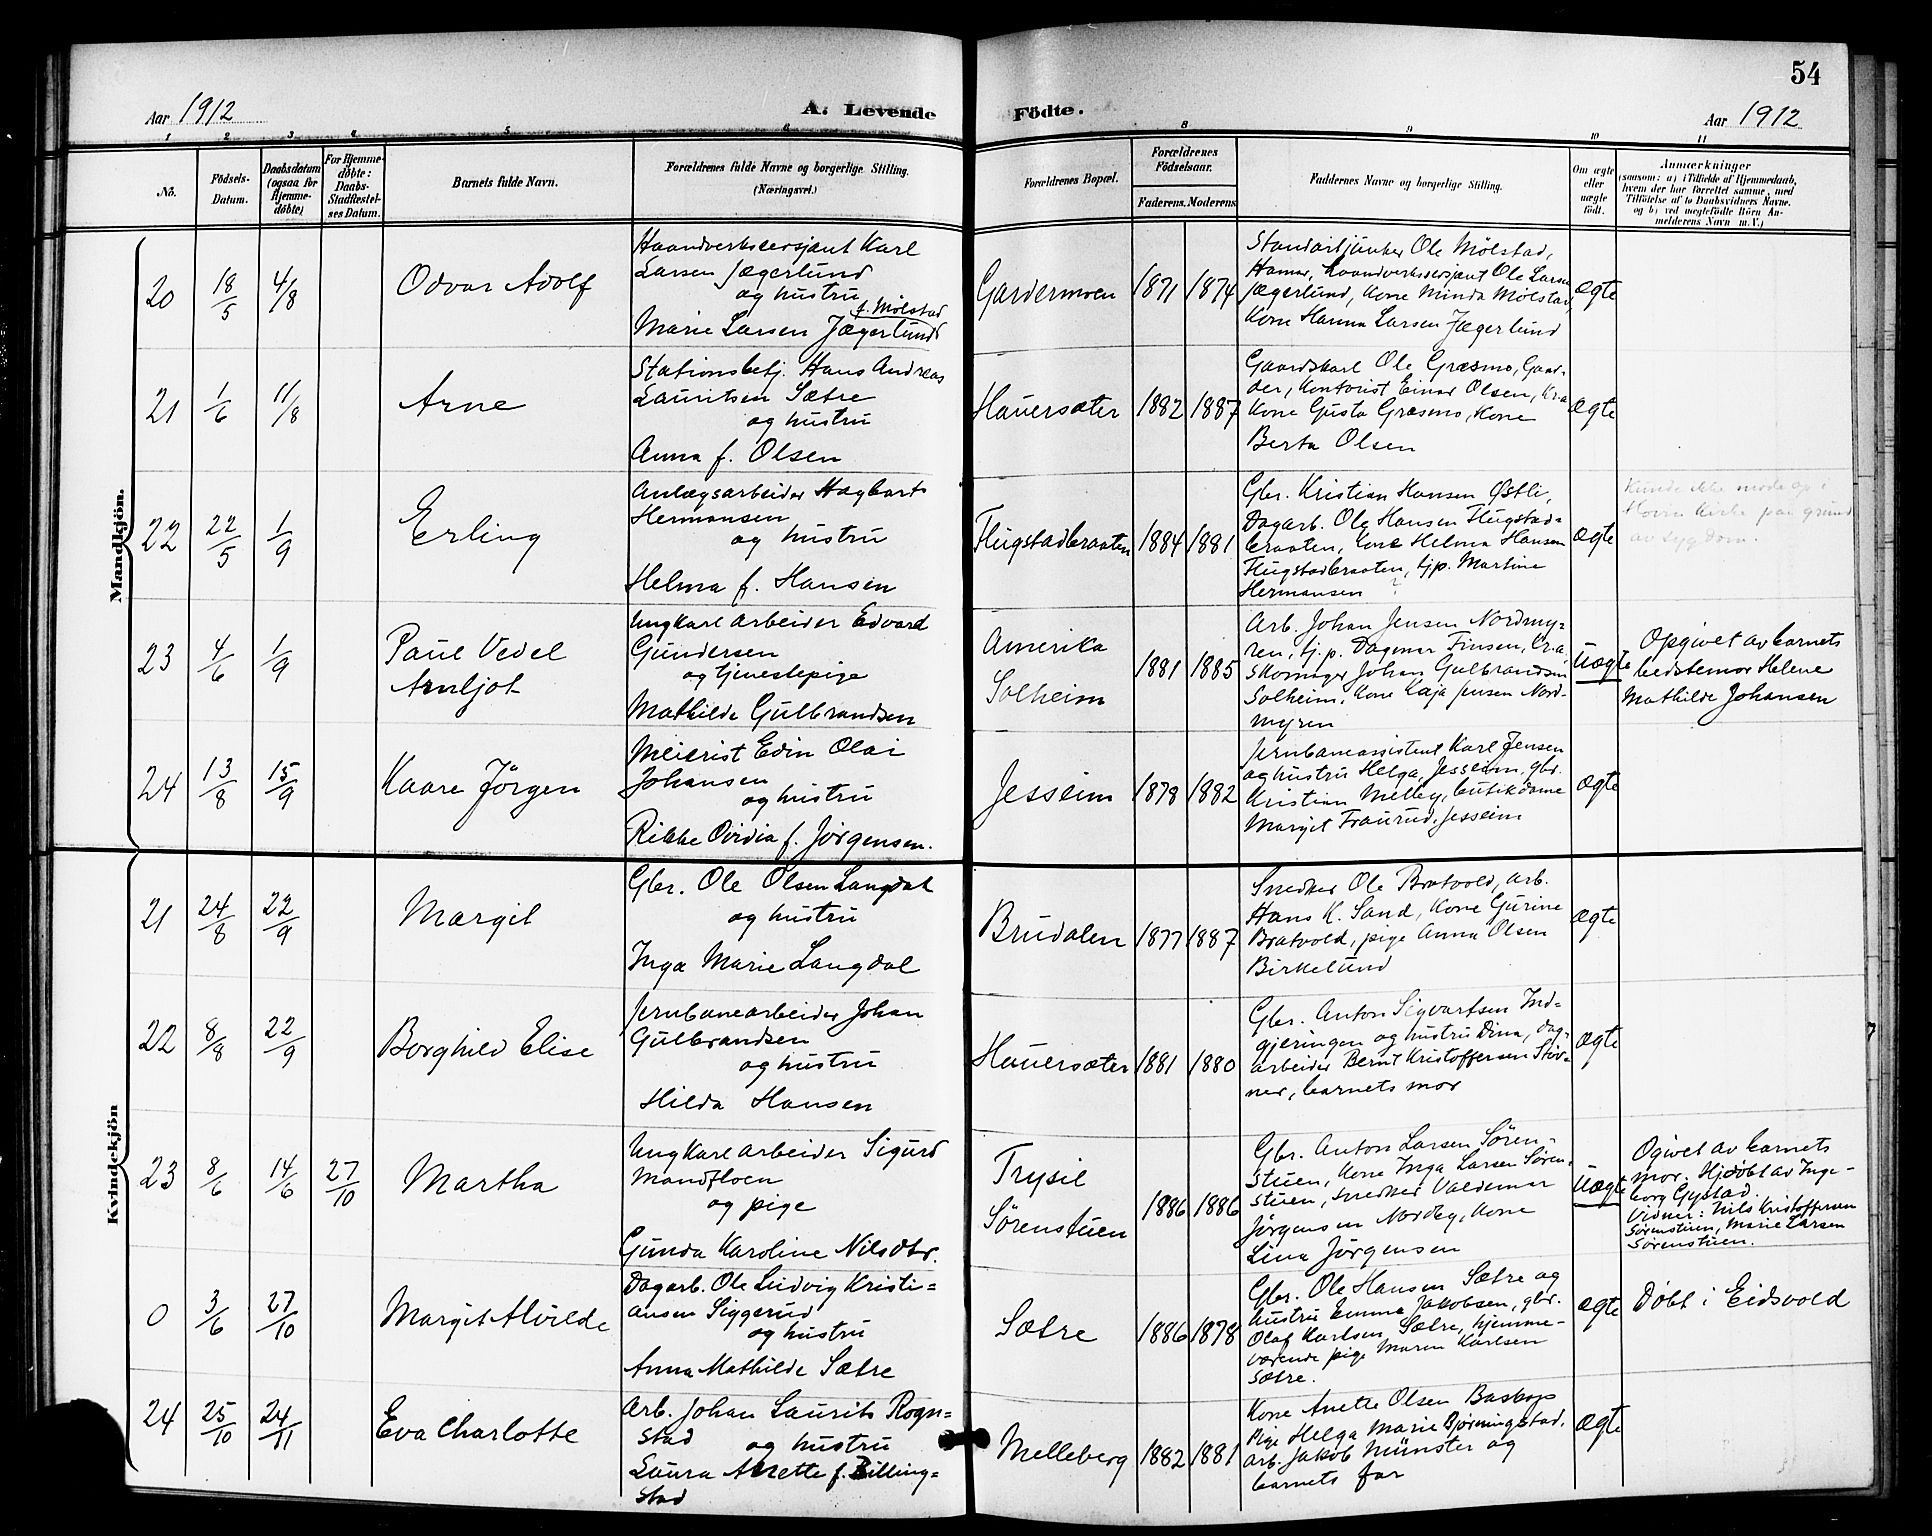 54
Aar 1912
A. Levende
Födte.
Aar 1912
1 2 3 4 5 6 8 9 10 11
No.
Födsels-
Datum.
Daabsdatum
(ogsaa for
Hjemme-
døbte)
For Hjemme-
døbte:
Daabs-
Stadfæstel-
ses Datum.
Barnets fulde Navn.
Forældrenes fulde Navne og borgerlige Stilling.
(Næringsvei.)
Forældrenes Bopæl.
Forældrenes
Födselsaar.
Faderens. Moderens.
Faddernes Navne og borgerlige Stilling.
Om ægte
eller
uægte
født.
Anmærkninger
(saasom: a) i Tilfælde af Hjemmedaab,
hvem der har forrettet samme, med
Tilføielse af to Daabsvidners Navne.
og b) ved uægtefödte Börn An-
melderens Navn m.V.)
Mandkjön.
20
18/5
4/8
Odvar Adolf
Haandverksersjant Karl
Larsen Jægerlund
og hustru
f. Mølstad
Marie Larsen Jægerlund
Gardermoen
1871
1874
Standartjunker Ole Mølstad,
Hamar, haandverksersjant Ole Larsen
Jægerlund, kone Minda Mølstad,
Kone Hanna Larsen Jægerlund
Ægte
21
1/6
11/8
Arne
Stationsbetj. Hans Andreas
Lauritsen Sætre
og hustru
Anna f. Olsen
Hauersæter
1882
1887
Gaardskarl Ole Græsmo, Gaar-
der, Kontorist Einar Olsen, Kra
Kone Gusta Græsmo, Kone
Berta Olsen
Ægte
22
22/5
1/9
Erling
Anlægsarbeider Hagbart
Hermansen
og hustru
Helma f. Hansen
Flugstadbraaten
1884
1881
Gbr. Kristian Hansen Østli,
Dagarb. Ole Hansen Flugstad-
braaten, Kone Helma Hansen
Flugstadbraaten, tjp. Martine
Hermansen ?
Ægte
Kunde ikke møde op i
Hovin kirke paa grund
av sygdom.
23
4/6
1/9
Paul Vedel
Arnljot
Ungkarl arbeider Edvard
Gundersen
og tjenestepige
Mathilde Gulbrandsen
Amerika
Solheim
1881
1885
Arb. Johan Jensen Nordmy-
ren, tj.p. Dagmar Finsen, Kr.a
Skomager Johan Gulbrandsen
Solheim, Kone Kaja Jensen Nord-
myren
Uægte
Opgivet av barnets
bedstemor Helene
Mathilde Johansen
24
13/8
15/9
Kaare Jörgen
Meierist Edin Olai
Johansen
og hustru
Rikke Ovidia f. Jörgensen.
Jesseim
1878
1882
Jernbaneassistent Karl Jensen
og hustru Helga, Jesseim, gbr.
Kristian Melby, butikdame
Margit Fraurud, Jesseim
Ægte
Kvindekjön
21
24/8
22/9
Margit
Gbr. Ole Olsen Langdal
og hustru
Inga Marie Langdal
Brudalen
1877
1887
Snedker Ole Bratvold, arb.
Hans K. Sand, Kone Gurine
Bratvold, pige Anna Olsen
Birkelund
Ægte
22
8/8
22/9
Borghild Elise
Jernbanearbeider Johan
Gulbrandsen
og hustru
Hilda Hansen
Hauersæter
1881
1880
Gbr. Anton Sigvartsen Ind-
gjeringen og hustru Dina, dag-
arbeider Bernt Kristoffersen Stöv-
ner, barnets mor
Ægte
23
8/6
14/6
27/10
Martha
Ungkarl arbeider Sigurd
Mandfloen
og pige
Gunda Karoline Nilsdtr.
Trysil
Sörenstuen
1886
1886
Gbr. Anton Larsen Sören-
stuen, Kone Inga Larsen Sören-
stuen, snedker Valdemar
Jörgensen Nordby, Kone
Lina Jörgensen
Uægte
Ogivet av barnets
mor. Hjdöbt av Inge-
borg Gystad.
Vidner: Nils Kristoffersen
Sørenstuen, Marie Larsen
Sørenstuen.
0
3/6
27/10
Margit Alvilde
Dagarb. Ole Ludvig Kristi-
ansen Siggerud
og hustru
Anna Mathilde Sætre
Sætre
1886
1878
Gbr. Ole Hansen Sætre og
hustru Emma Jakobsen, gbr.
Olaf Karlsen, Sætre, hjemme-
værende pige Maren Karlsen
Sætre.
Ægte
Döbt i Eidsvold
24
25/10
24/11
Eva Charlotte
Arb. Johan Laurits Rogn-
stad
og hustru
Laura Anette f. Billing-
stad
Melleberg
1882
1881
Kone Anette Olsen Baskop
Pige Helga Marie Bjørningstad,
arb. Jakob Münster og
barnets far
Ægte